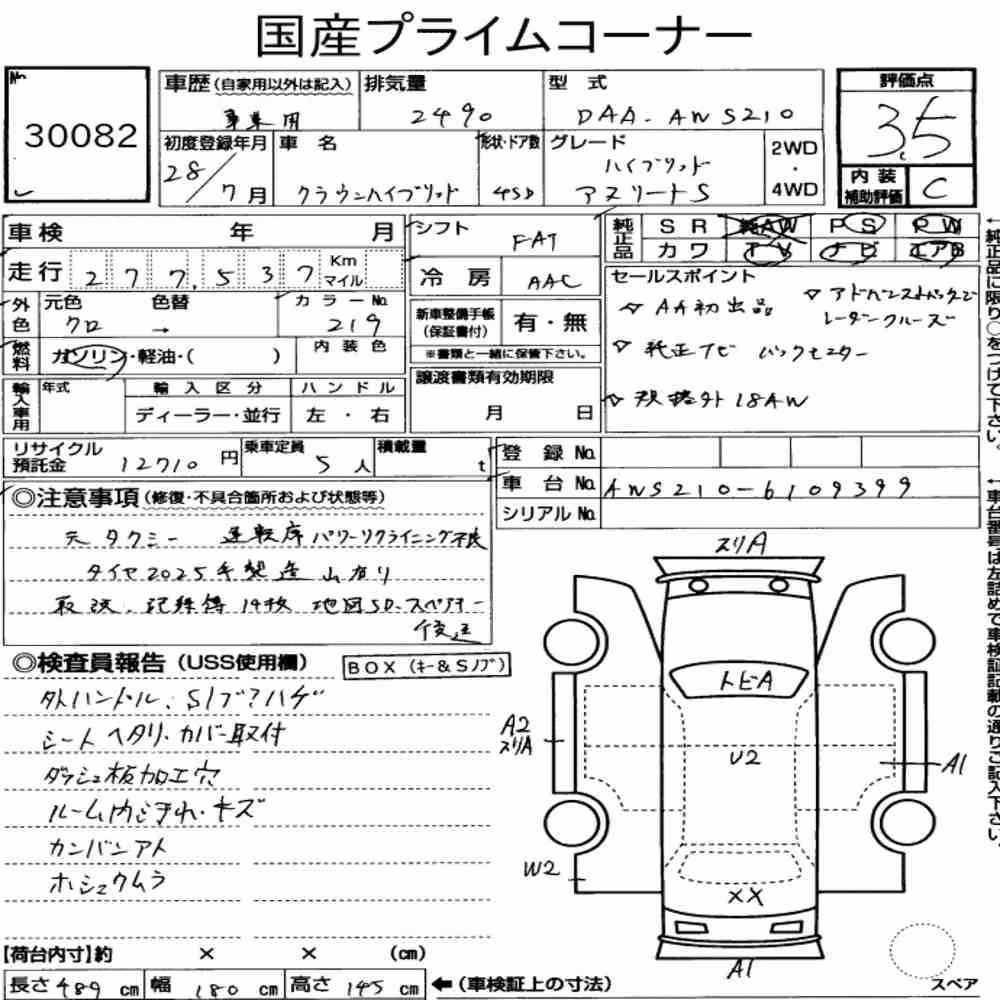 国産プライムコーナー
No.
30082
車歴(自家用以外は記入)
事業用
排気量
2490
型式
DAA-AWS210
評価点
3.5
初度登録年月
28/7月
車名
クラウンハイブリッド
形状・ドア数
4SD
グレード
ハイブリッド
アスリートS
2WD
・
4WD
内装
補助評価
C
車検 年 月
シフト
FAT
純正品
SR 純AW PS PW
カワ TV ナビ エアB
走行 277,537 Km マイル
冷房
AAC
セールスポイント
☆ AA初出品
☆ アドバンストパックで
レーダークルーズ
☆ 純正ナビ バックモニター
☆ 規格外18AW
外色
元色 色替
クロ →
カラーNo.
219
新車整備手帳
(保証書付)
有・無
※書類と一緒に保管下さい。
燃料
ガソリン・軽油・( )
内装色
譲渡書類有効期限
月 日
輸入車用
年式
輸入区分
ディーラー・並行
ハンドル
左・右
リサイクル
預託金
12710円
乗車定員
5人
積載量
t
登録No.
車台No.
AWS210-6109399
シリアルNo.
←純正品に限り○をつけて下さい。
←車台番号は左詰めで車検証記載の通りご記入下さい。
◎注意事項(修復・不具合箇所および状態等)
元タクシー 運転席パワーリクライニング不良
タイヤ2025年製造 山有り
取説、記録簿19枚 地図SD、スペアキー
後送
◎検査員報告(USS使用欄)
BOX(キー&Sノブ)
外ハンドル、Sノブ?ハゲ
シートヘタリ・カバー取付
ダッシュ板加工穴
ルーム内ヨゴれ・キズ
カンバンアト
ホシュウムラ
スリA
トビA
U2
A2
スリA
A1
W2
XX
A1
スペア
【荷台内寸】約 × × (cm)
長さ489cm 幅180cm 高さ145cm ←(車検証上の寸法)